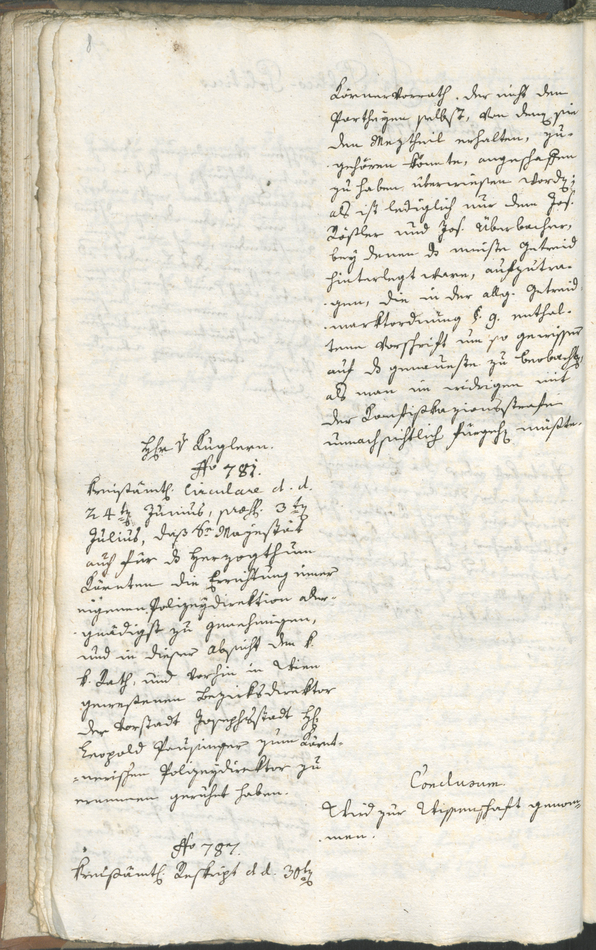 Körnervorrath, der nicht den
Partheyen selbst, von denen sie
den Meztheil erhalten, zu-
gehören könnte, angeschaffen
zu haben überwiesen worden;
als ist lediglich nur dem Jos.
Kößler und Jos. Überbacher,
bey denen das meiste Getreid
hinterlegt ware, aufzutra-
gen, die in der allg. Getreid
marktordnung §. 9. enthal-
tene Vorschrift um so gewisser
auf das genaueste zu beobachten,
als man im widrigen mit
der Konfiskazionsstrafe
unnachsichtlich fürgehen müßte.
Hhr v Kuglern.
No 781.
Kreisämtl. Circulare d. d.
24ten Junius, praes. 3ten
Julius, daß Se Majestät
auch für das Herzogthum
Kärnten die Errichtung einer
eigenen Polizeydirektion aller-
gnädigst zu genehmigen,
und in dieser Absicht den k.
k. Rath, und vorhin in Wien
gewesenen Bezirksdirektor
der Vorstadt Josephsstadt Hh.
Leopold Pausinger zum Kärnt-
nerischen Polizeydirektor zu
ernennen geruhet haben.
Conclusum.
Wird zur Wissenschaft genom-
men.
No 787.
Kreisämtl. Reskript d d. 30ten